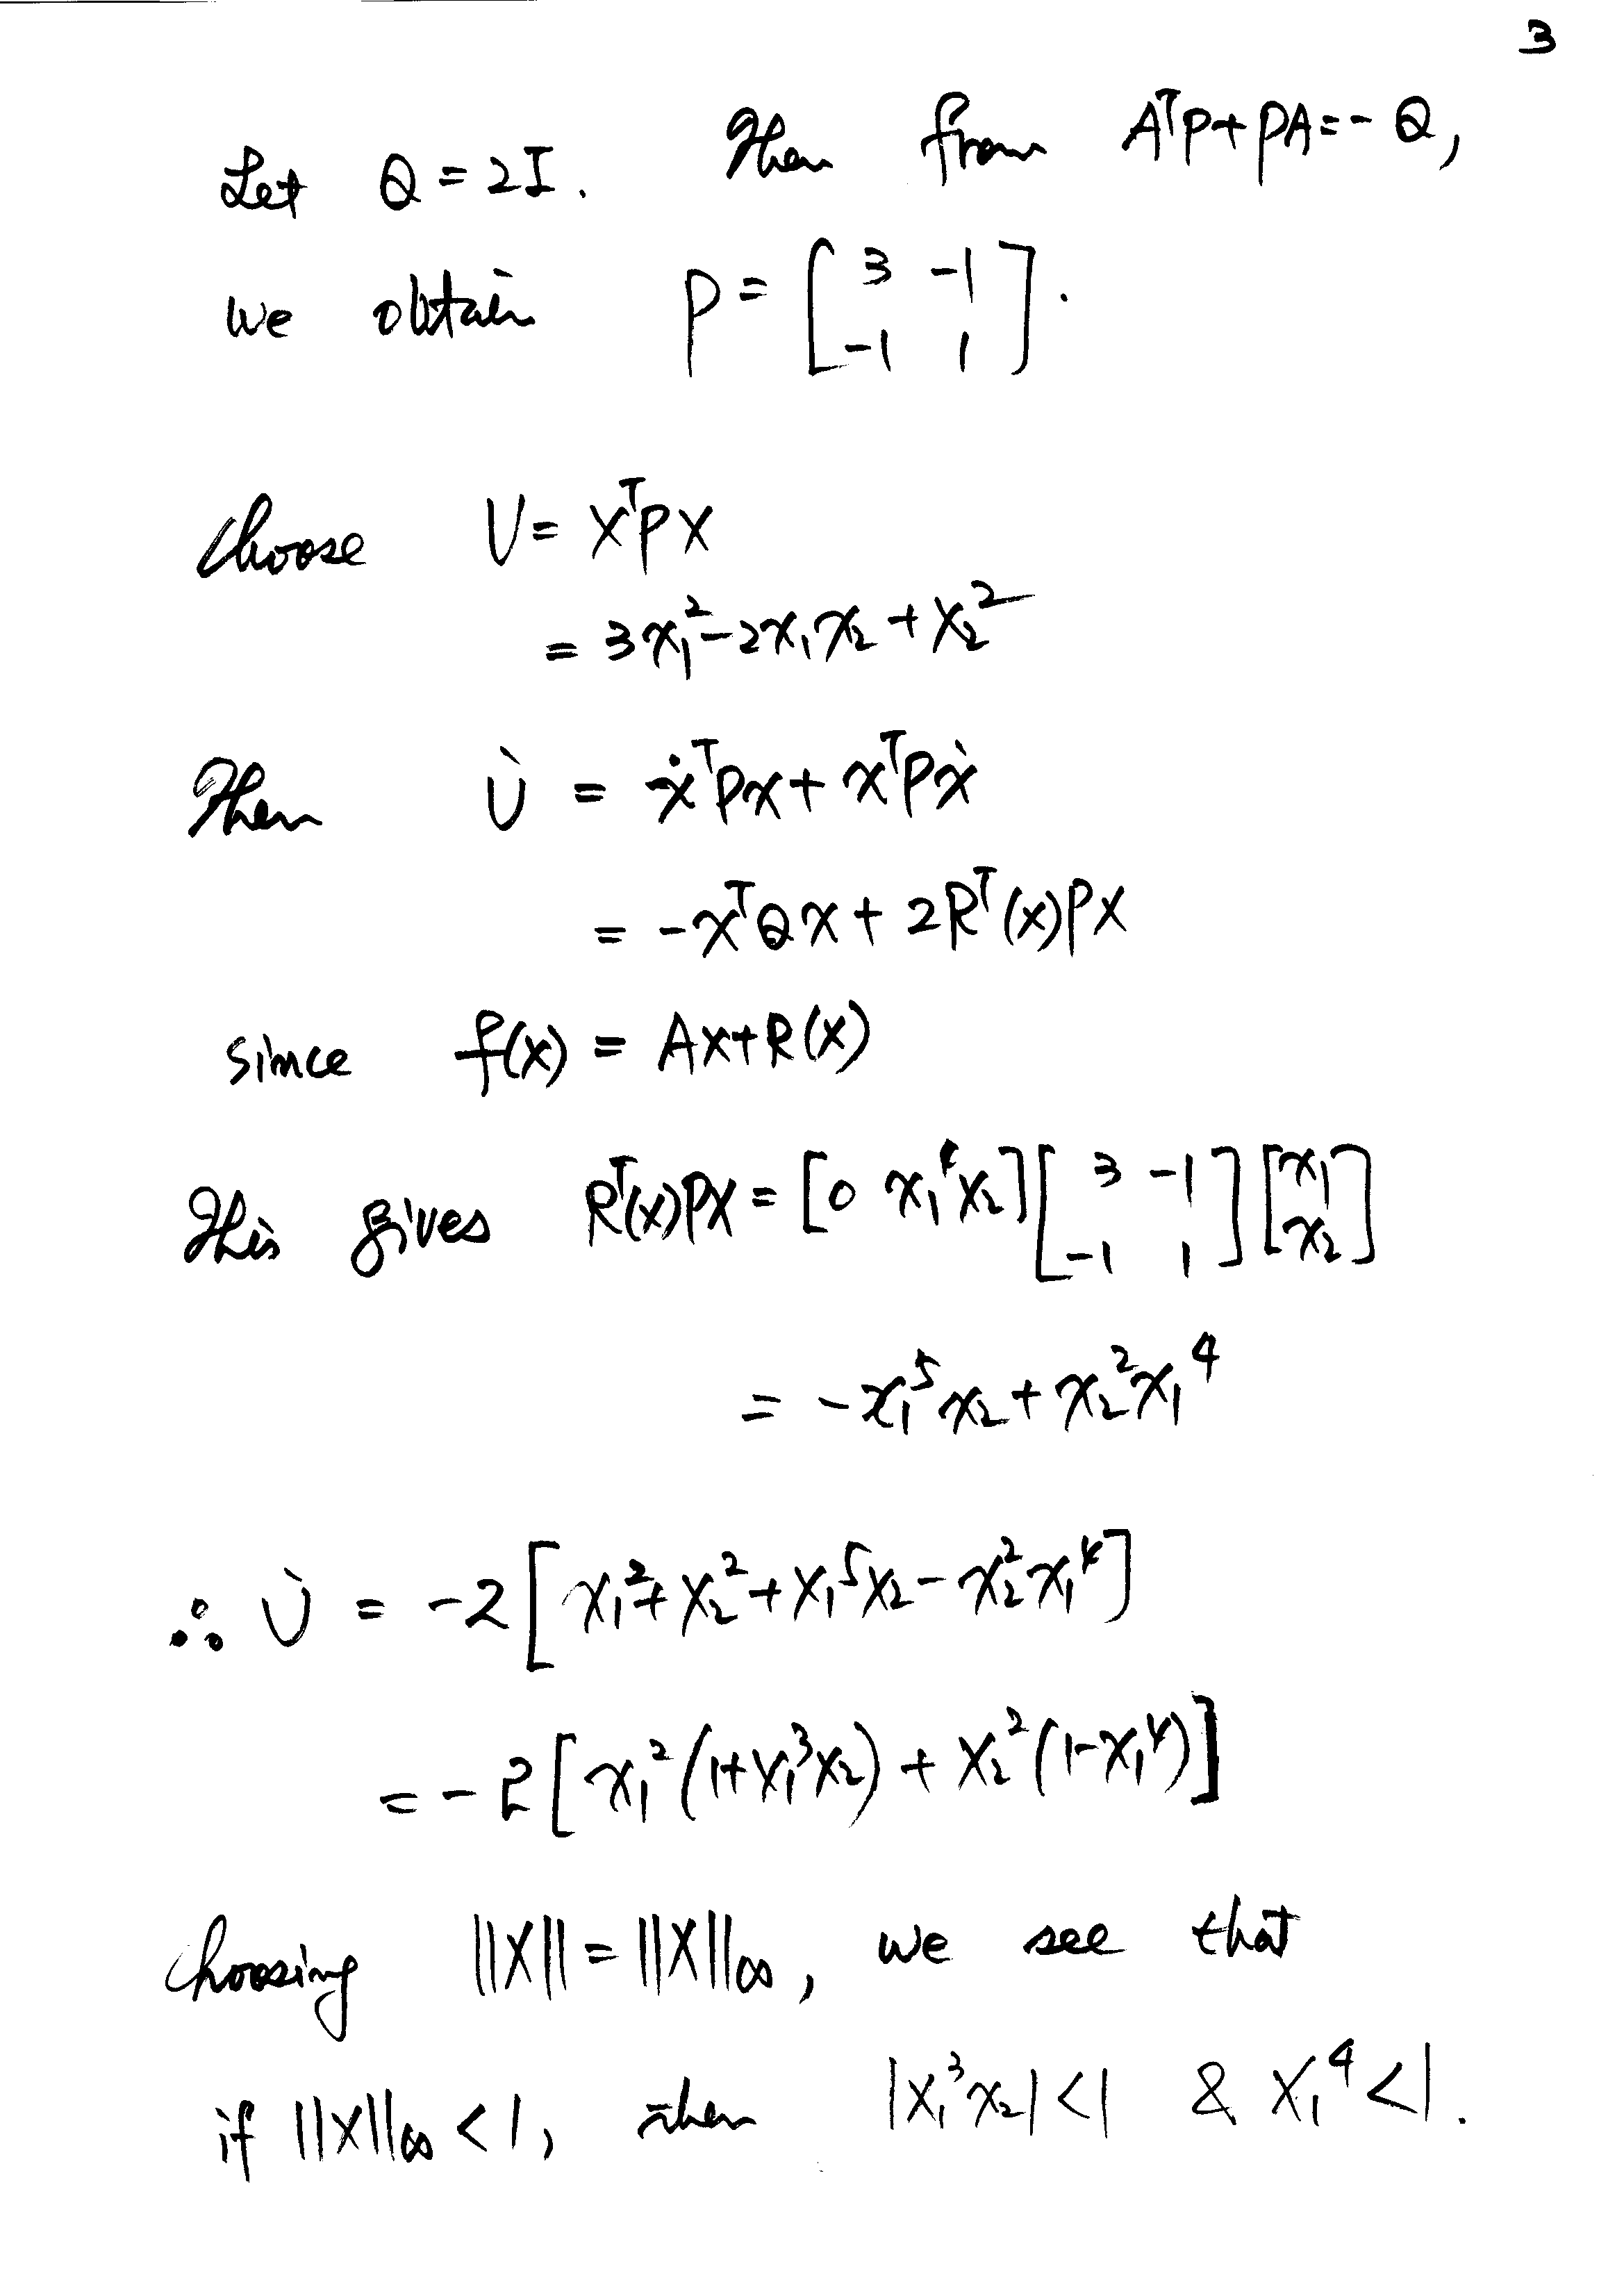 3
Let Q = 2I. Then from AᵀP + PA = -Q,
we obtain P = [3 -1; -1 1].
Choose V = xᵀPx
= 3x₁² - 2x₁x₂ + x₂²
Then V̇ = ẋᵀPx + xᵀPẋ
= -xᵀQx + 2Rᵀ(x)Px
since f(x) = Ax + R(x)
This gives Rᵀ(x)Px = [0 x₁⁴x₂] [3 -1; -1 1] [x₁; x₂]
= -x₁⁵x₂ + x₂²x₁⁴
∴ V̇ = -2[x₁² + x₂² + x₁⁵x₂ - x₂²x₁⁴]
= -2[x₁²(1 + x₁³x₂) + x₂²(1 - x₁⁴)]
Choosing ||x|| = ||x||∞, we see that
if ||x||∞ < 1, then |x₁³x₂| < 1 & x₁⁴ < 1.